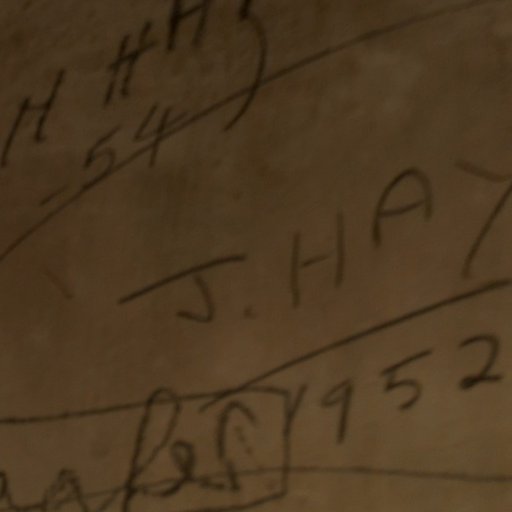 H H H
-54
J. HAY
1952